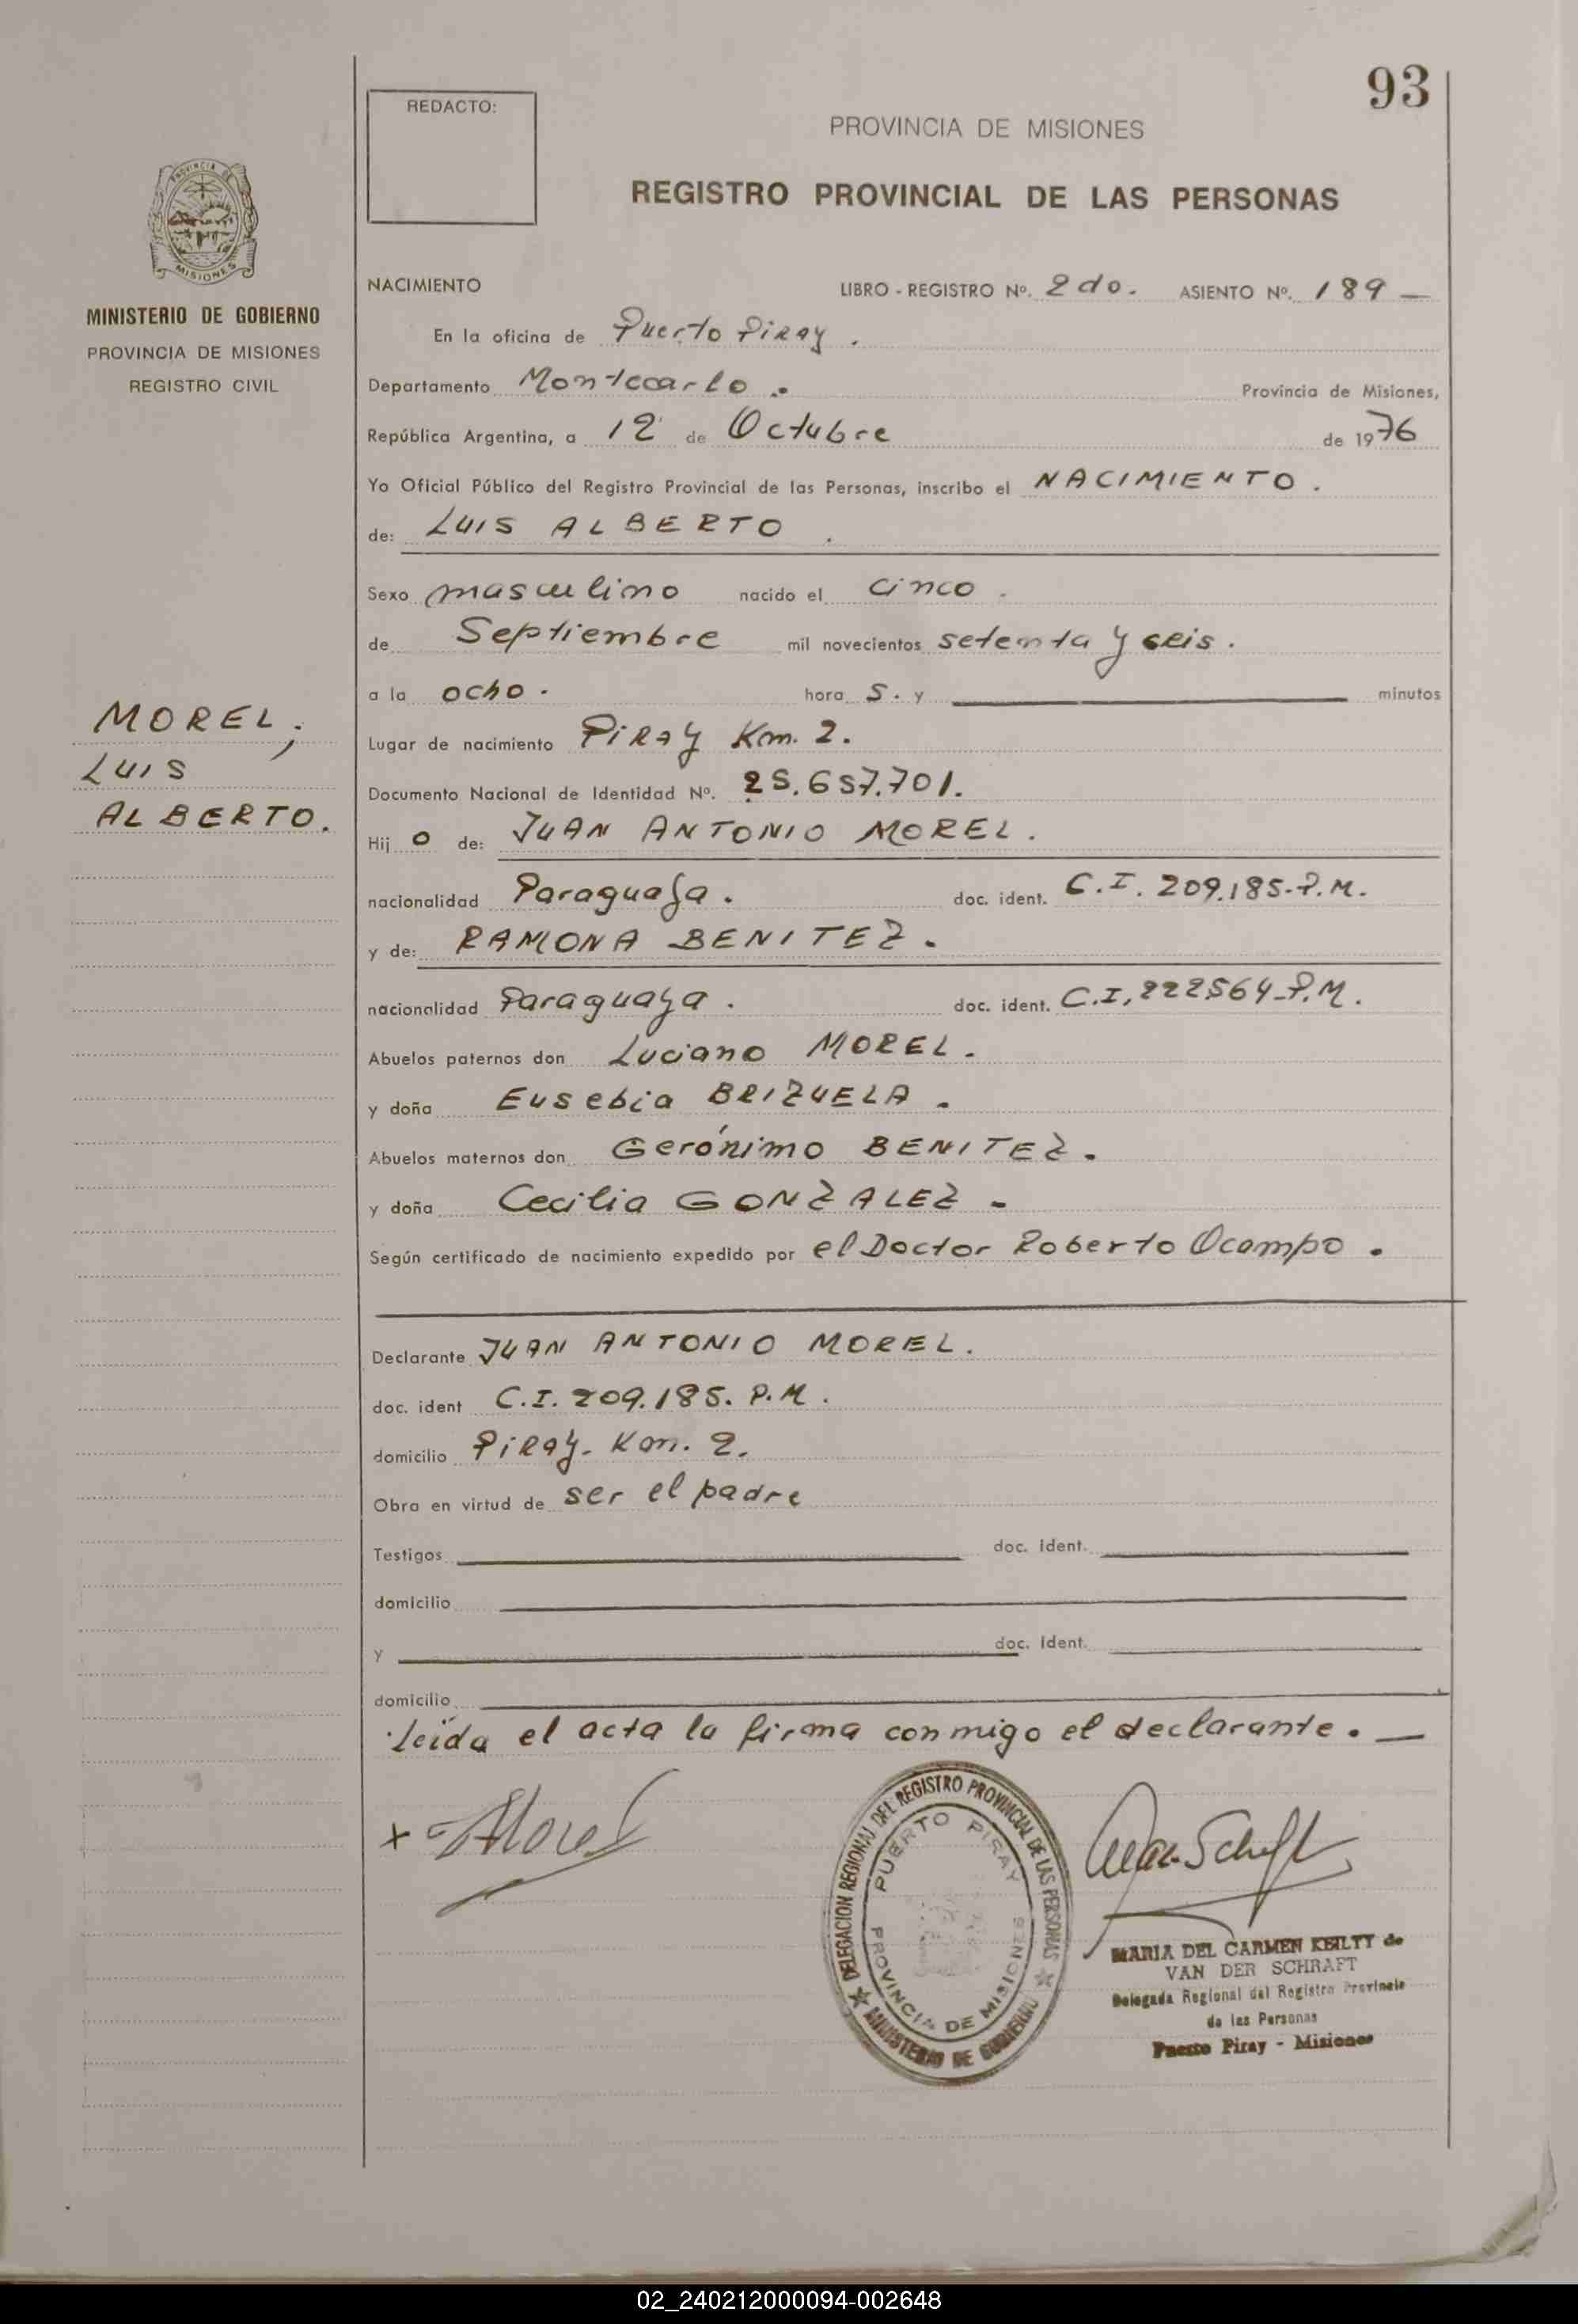 93
REDACTO:
PROVINCIA DE MISIONES
REGISTRO PROVINCIAL DE LAS PERSONAS
PROVINCIA DE
MISIONES
MINISTERIO DE GOBIERNO
PROVINCIA DE MISIONES
REGISTRO CIVIL
NACIMIENTO LIBRO - REGISTRO Nº. 2do. ASIENTO Nº. 189 —
En la oficina de Puerto Piray.
Departamento Montecarlo. Provincia de Misiones,
República Argentina, a 12 de Octubre de 1976
Yo Oficial Público del Registro Provincial de las Personas, inscribo el NACIMIENTO.
de: LUIS ALBERTO.
Sexo masculino nacido el cinco.
de Septiembre mil novecientos setenta y seis.
a la ocho. hora s. y minutos
MOREL,
LUIS
ALBERTO.
Lugar de nacimiento Piray Km. 2.
Documento Nacional de Identidad Nº. 25.657.701.
Hij o de: JUAN ANTONIO MOREL.
nacionalidad Paraguaya. doc. ident. C.I. 209.185-P.M.
y de: RAMONA BENITEZ.
nacionalidad Paraguaya. doc. ident. C.I, 222564-P.M.
Abuelos paternos don Luciano MOREL.
y doña Eusebia BRIZUELA.
Abuelos maternos don Gerónimo BENITEZ.
y doña Cecilia GONZALEZ -
Según certificado de nacimiento expedido por el Doctor Roberto Ocampo.
Declarante JUAN ANTONIO MOREL.
doc. ident C.I. 209.185. P.M.
domicilio Piray- Km. 2.
Obra en virtud de ser el padre
Testigos doc. ident.
domicilio
y doc. ident.
domicilio
Leída el acta la firma conmigo el declarante. —
x Morel
DELEGACION REGIONAL DEL REGISTRO PROVINCIAL DE LAS PERSONAS
PUERTO PIRAY
PROVINCIA DE MISIONES
MINISTERIO DE GOBIERNO
MARIA DEL CARMEN KEILTY de
VAN DER SCHRAFT
Delegada Regional del Registro Provincia
de las Personas
Puerto Piray - Misiones
02_240212000094-002648